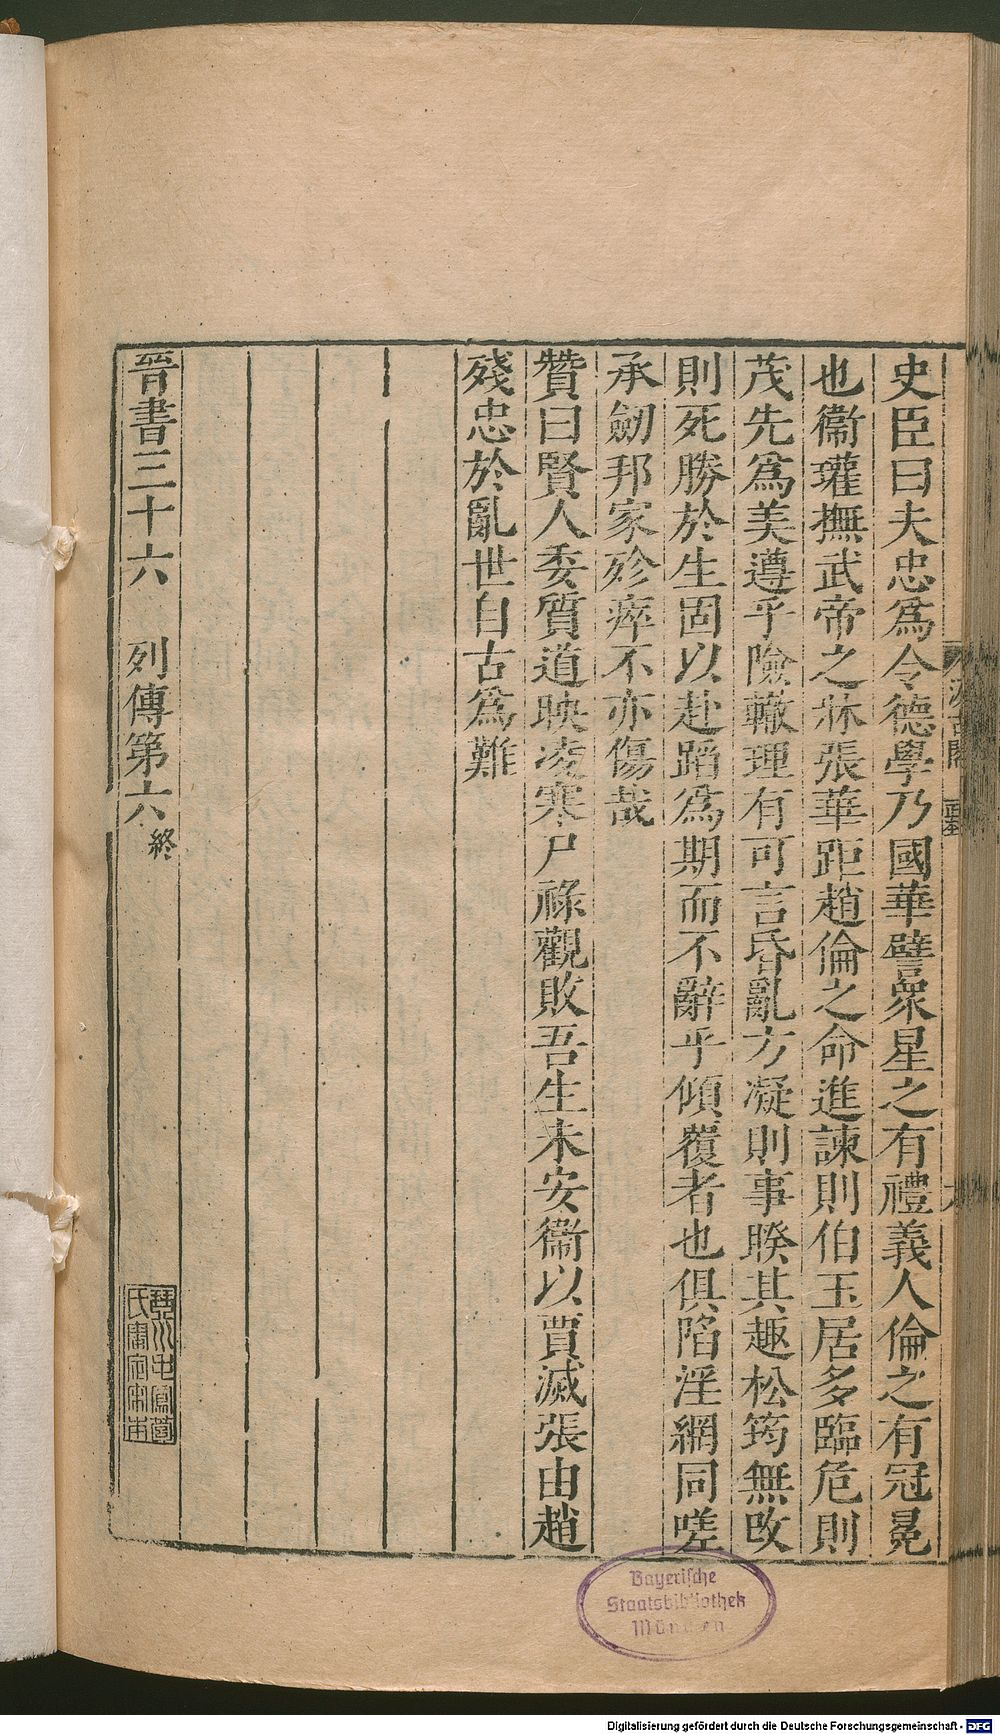 史臣曰夫忠爲令德學乃國華譬衆星之有禮義人倫之有冠冕
也衞瓘撫武帝之牀張華距趙倫之命進諫則伯玉居多臨危則
茂先爲美遵乎險轍理有可言昏亂方凝則事睽其趣松筠無改
則死勝於生固以赴蹈爲期而不辭乎傾覆者也俱陷淫網同嗟
承劒邦家殄瘁不亦傷哉
贊曰賢人委質道映凌寒尸祿觀敗吾生未安衞以賈滅張由趙
殘忠於亂世自古爲難
晉書三十六 列傳第六終
汲古閣
Bayerische
Staatsbibliothek
München
Digitalisierung gefördert durch die Deutsche Forschungsgemeinschaft - DFG